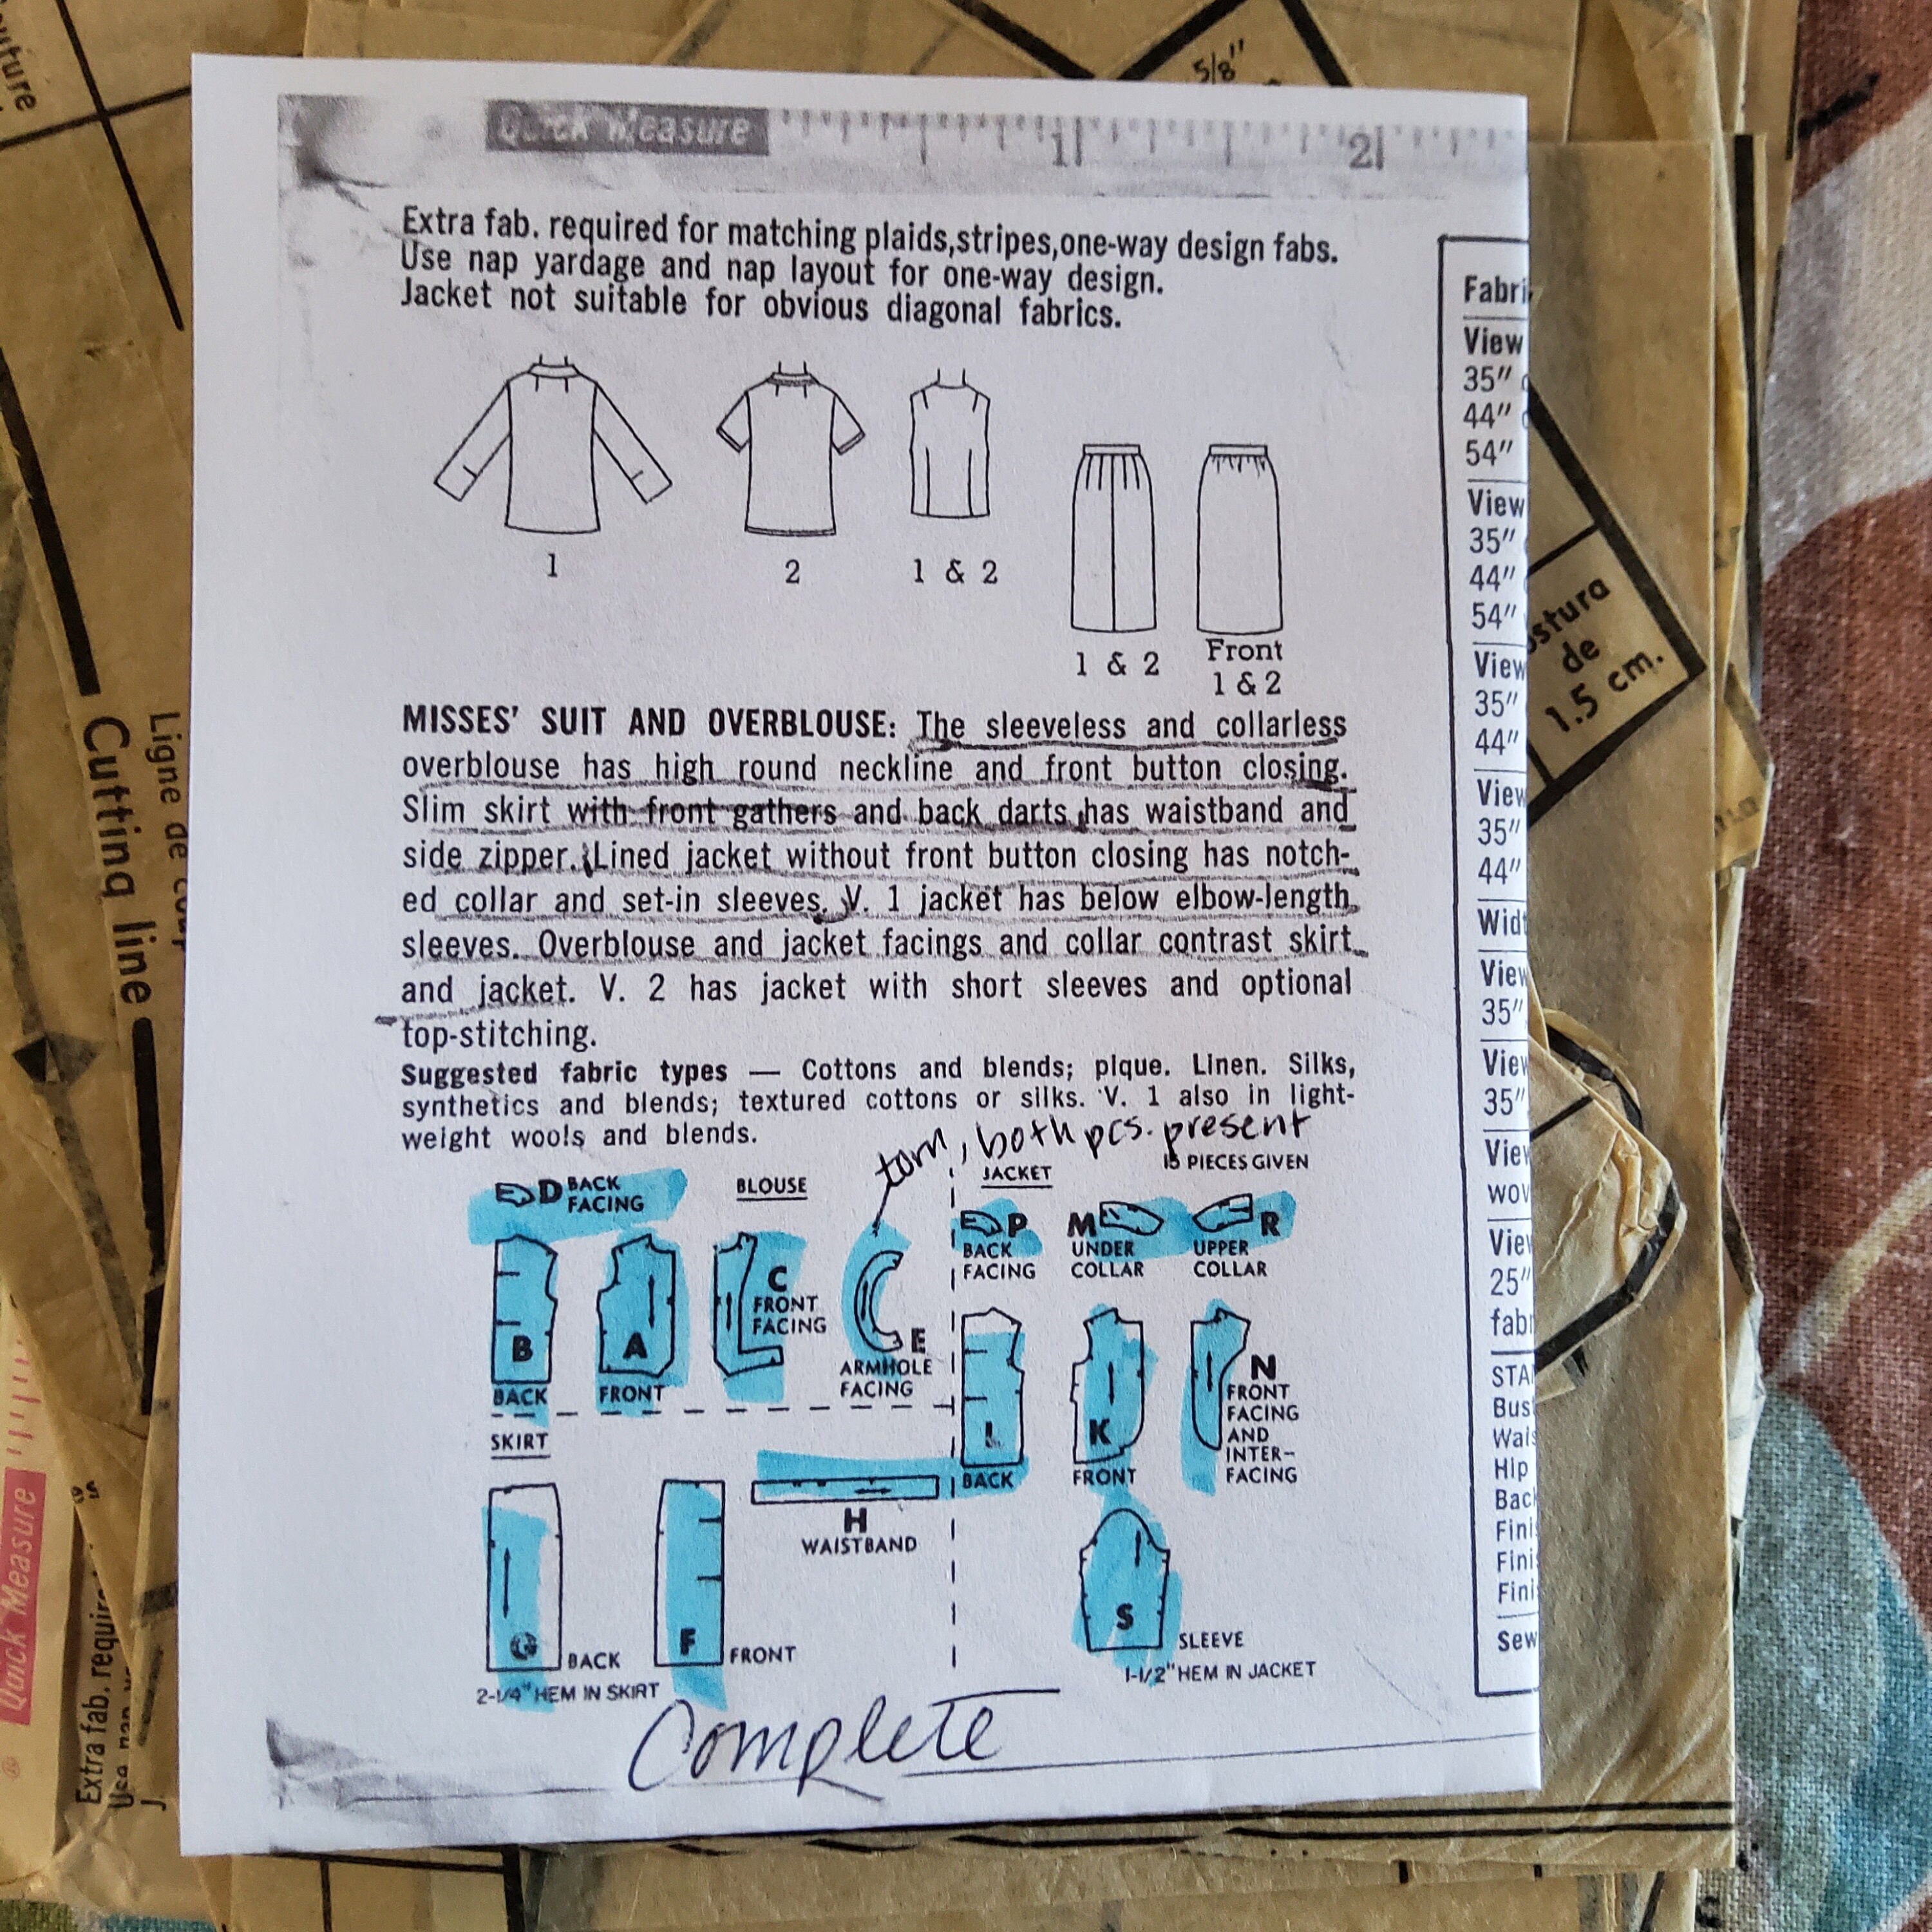 5/8"
Quick Measure
1
2
Extra fab. required for matching plaids,stripes,one-way design fabs.
Use nap yardage and nap layout for one-way design.
Jacket not suitable for obvious diagonal fabrics.
1
2
1 & 2
1 & 2
Front
1 & 2
MISSES' SUIT AND OVERBLOUSE: The sleeveless and collarless
overblouse has high round neckline and front button closing.
Slim skirt with front gathers and back darts has waistband and
side zipper. Lined jacket without front button closing has notch-
ed collar and set-in sleeves. V. 1 jacket has below elbow-length
sleeves. Overblouse and jacket facings and collar contrast skirt
and jacket. V. 2 has jacket with short sleeves and optional
top-stitching.
Suggested fabric types — Cottons and blends; pique. Linen. Silks,
synthetics and blends; textured cottons or silks. V. 1 also in light-
weight wools and blends.
torn, both pcs. present
15 PIECES GIVEN
D BACK
FACING
BLOUSE
B
BACK
A
FRONT
C
FRONT
FACING
E
ARMHOLE
FACING
JACKET
P
BACK
FACING
M
UNDER
COLLAR
R
UPPER
COLLAR
L
BACK
K
FRONT
N
FRONT
FACING
AND
INTER-
FACING
SKIRT
G
BACK
2-1/4" HEM IN SKIRT
F
FRONT
H
WAISTBAND
S
SLEEVE
1-1/2" HEM IN JACKET
Complete
Fabri
View
35"
44"
54"
View
35"
44"
54"
View
35"
44"
View
35"
44"
Widt
View
35"
View
35"
View
wov
View
25"
fabr
STA
Bus
Wais
Hip
Back
Fini
Fini
Fini
Sew
ostura
de
1.5 cm.
Ligne de coup
Cutting line
Quick Measure
Extra fab. require
Use nap
J